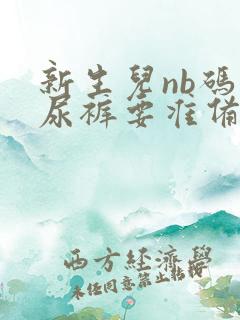 新生兒nb碼
尿褲要准備
西方經濟學
未任同意禁止轉授